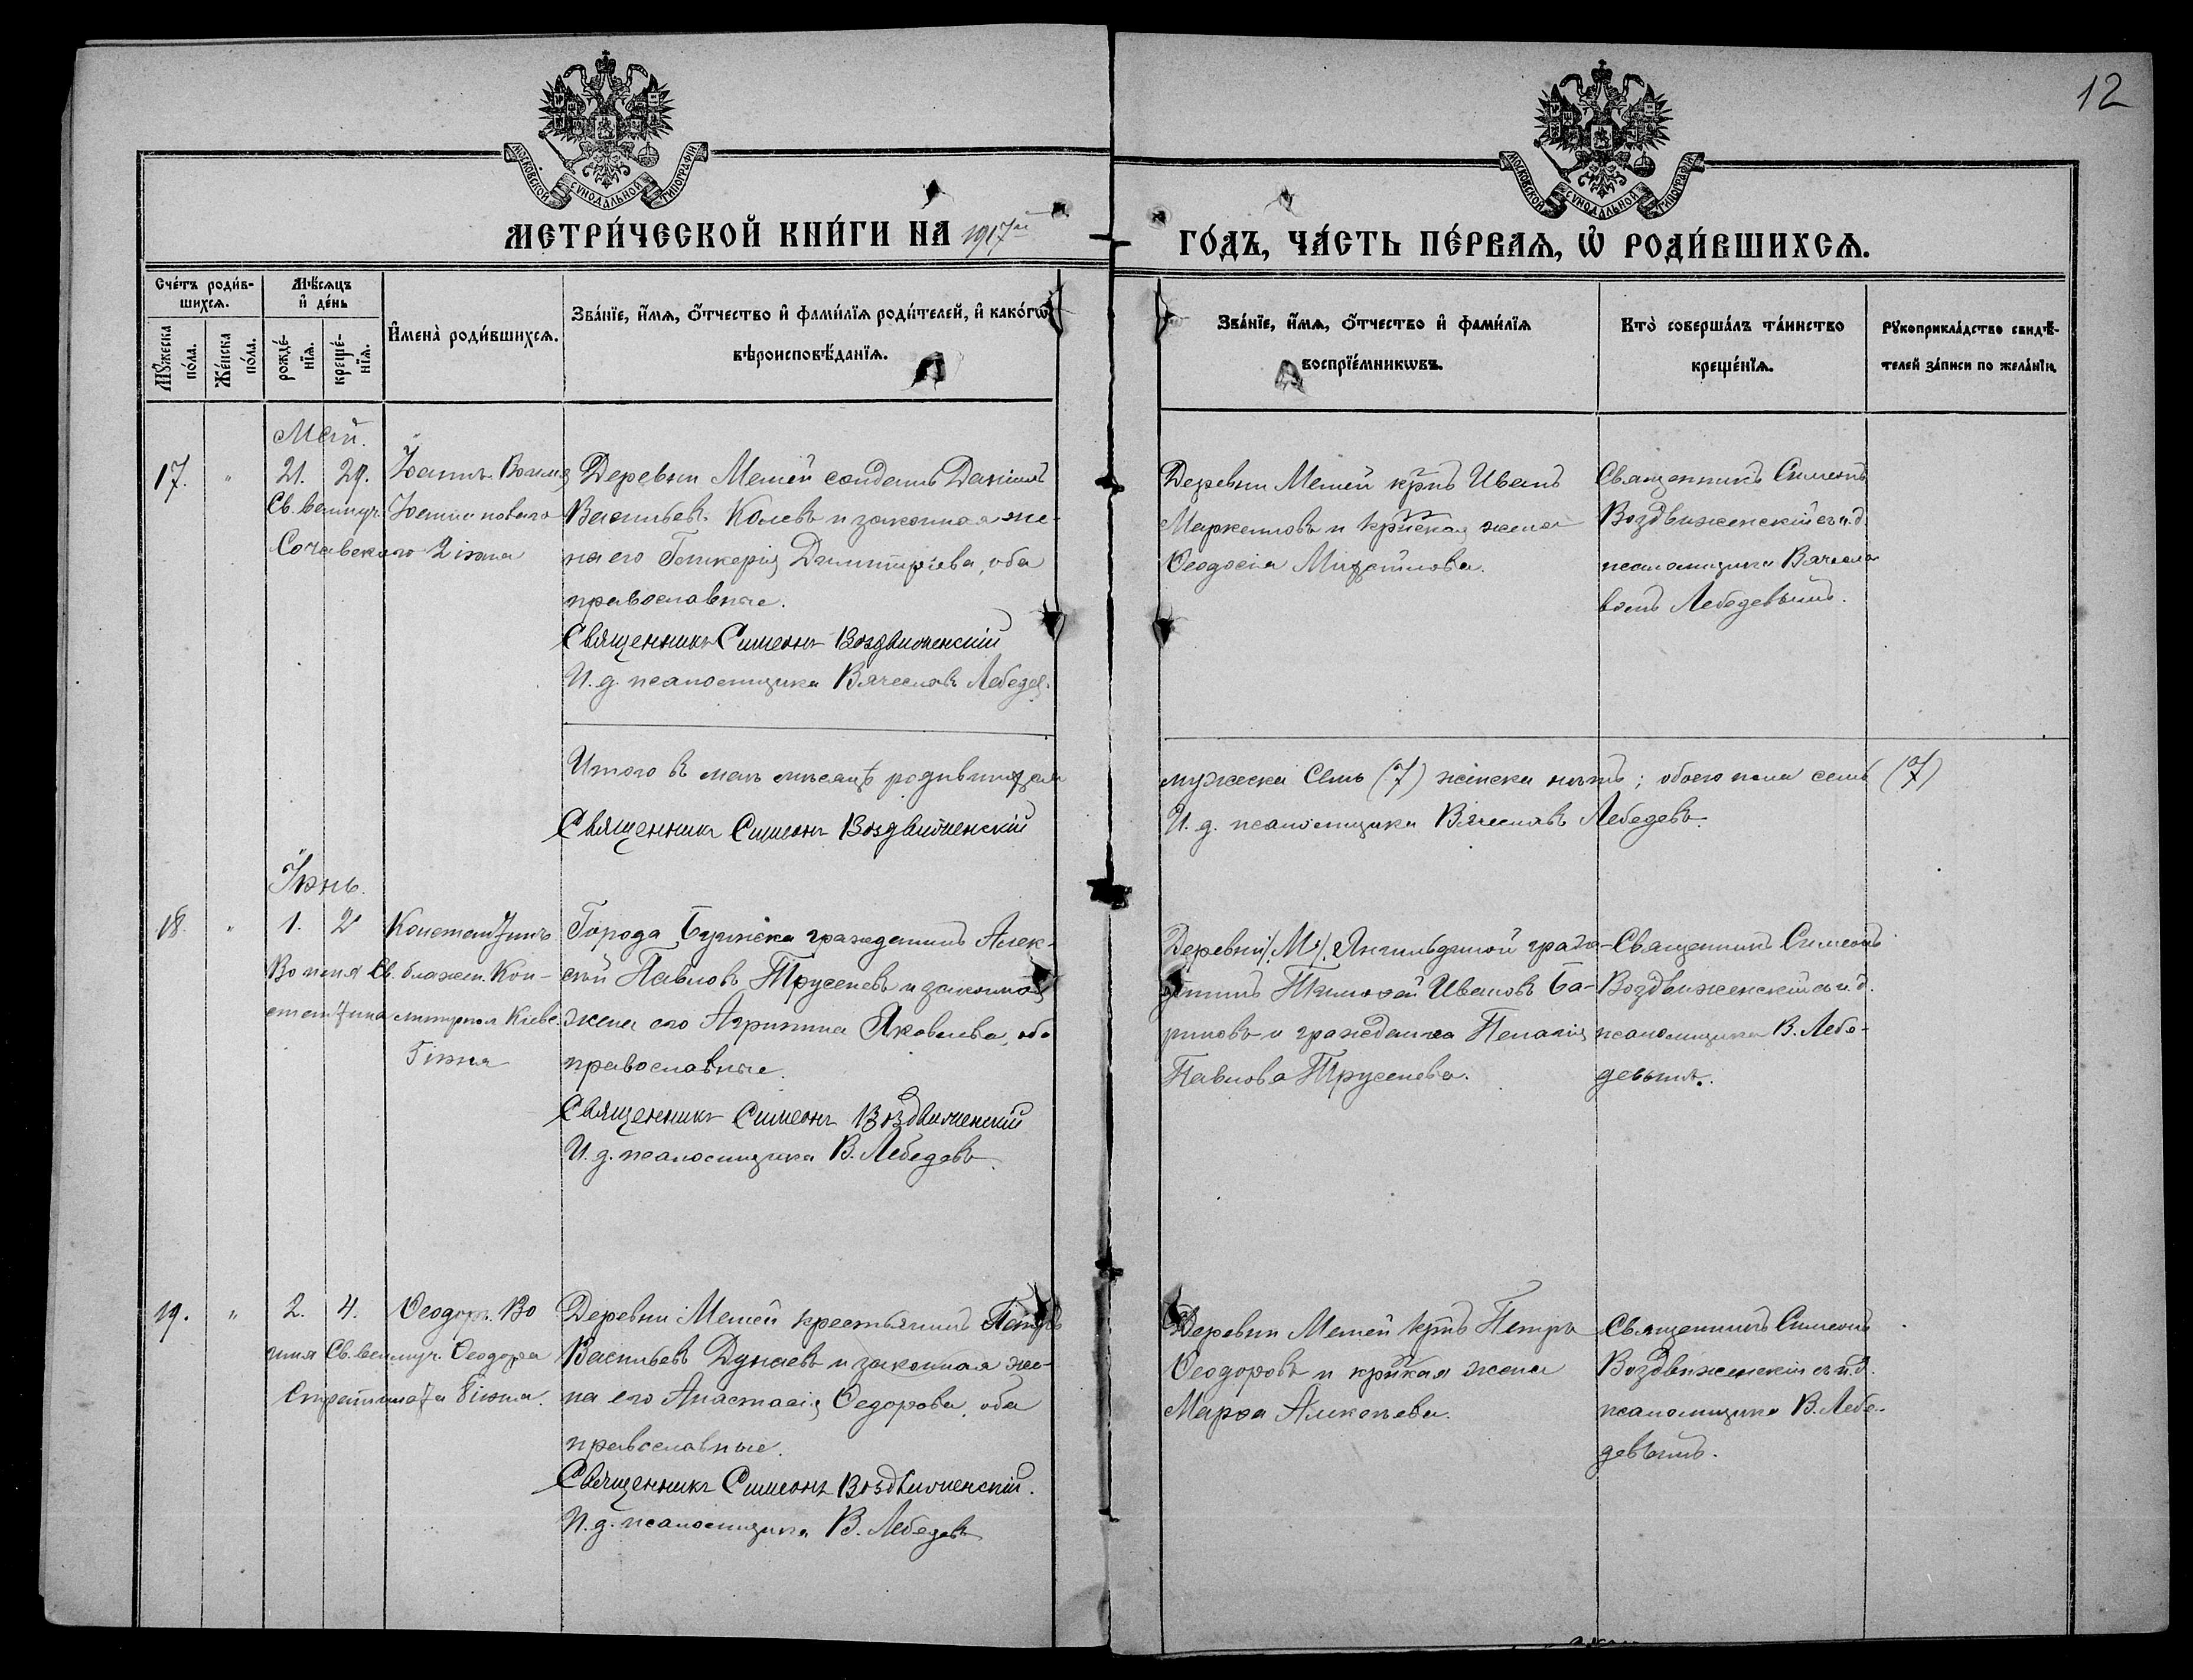 12
МОСКОВСКОЙ СѴНОДАЛЬНОЙ ТИПОГРАФІИ
МОСКОВСКОЙ СѴНОДАЛЬНОЙ ТИПОГРАФІИ
МЕТРИ́ЧЕСКОЙ КНИ́ГИ НА 1917й
ГО́ДЪ, ЧА́СТЬ ПЕ́РВАѦ, Ѡ РОДИ́ВШИХСѦ.
Сче́тъ роди́в-
шихсѧ.
Мꙋ́жеска по́ла.
Же́нска по́ла.
Мѣ́сѧцъ
и҆ де́нь
рожде́-
нїѧ.
креще́-
нїѧ.
И҆мена̀ роди́вшихсѧ.
Зва́нїе, и҆́мѧ, ѻ҆́тчество и҆ фами́лїѧ роди́телей, и҆ како́гѡ
вѣроисповѣ́данїѧ.
Зва́нїе, и҆́мѧ, ѻ҆́тчество и҆ фами́лїѧ
воспрїе́мникѡвъ.
Кто̀ соверша́лъ та́инство
креще́нїѧ.
Рꙋкоприкла́дство свидѣ́-
телей за́писи по жела́нїю.
Май.
17. " 21. 29. Іоаннъ. Во имя
Св. велмуч. Іоанна новаго
Сочавскаго 2 іюня
Деревни Мемей солдатъ Даніилъ
Васильевъ Колевъ и законная же-
на его Гликерія Димитріева, оба
православные.
Священникъ Симеонъ Воздвиженскій
И. д. псаломщика Вячеславъ Лебедев.
Деревни Мемей кр̃нъ Иванъ
Маркелловъ и кр̃нская жена
Ѳеодосія Михайлова.
Священникъ Симеонъ
Воздвиженскій съ и. д.
псаломщика Вячесла
вомъ Лебедевымъ.
Итого въ маѣ мѣсяцѣ родившихся
мужеска семь (7) женска нѣтъ; обоего пола семь (7)
Священникъ Симеонъ Воздвиженскій
И. д. псаломщика Вячеславъ Лебедевъ.
Іюнь.
18. " 1. 2 Константинъ
Во имя Св. блажен. Кон-
стантина митропол. Кіевс.
5 іюня
Города Буинска гражданинъ Алек-
сѣй Павловъ Трусеневъ и законная
жена его Агрипина Яковлева, оба
православные.
Священникъ Симеонъ Воздвиженскій
И. д. псаломщика В. Лебедевъ.
Деревни М. Янгильдиной граж-
данинъ Тимоѳей Ивановъ Ба-
риновъ и гражданка Пелагія
Павлова Трусенева.
Священникъ Симеонъ
Воздвиженскій съ и. д.
псаломщика В. Лебе-
девымъ.
19. " 2. 4. Ѳеодоръ. Во
имя Св. велмуч. Ѳеодора
Стратилата 8 іюня.
Деревни Мемей крестьянинъ Петръ
Васильевъ Дунаевъ и законная же-
на его Анастасія Ѳедорова, оба
православные.
Священникъ Симеонъ Воздвиженскій.
И. д. псаломщика В. Лебедевъ
Деревни Мемей кр̃нъ Петръ
Ѳеодоровъ и кр̃нкая жена
Марѳа Алексѣева.
Священникъ Симеонъ
Воздвиженскій съ и. д.
псаломщика В. Лебе-
девымъ.